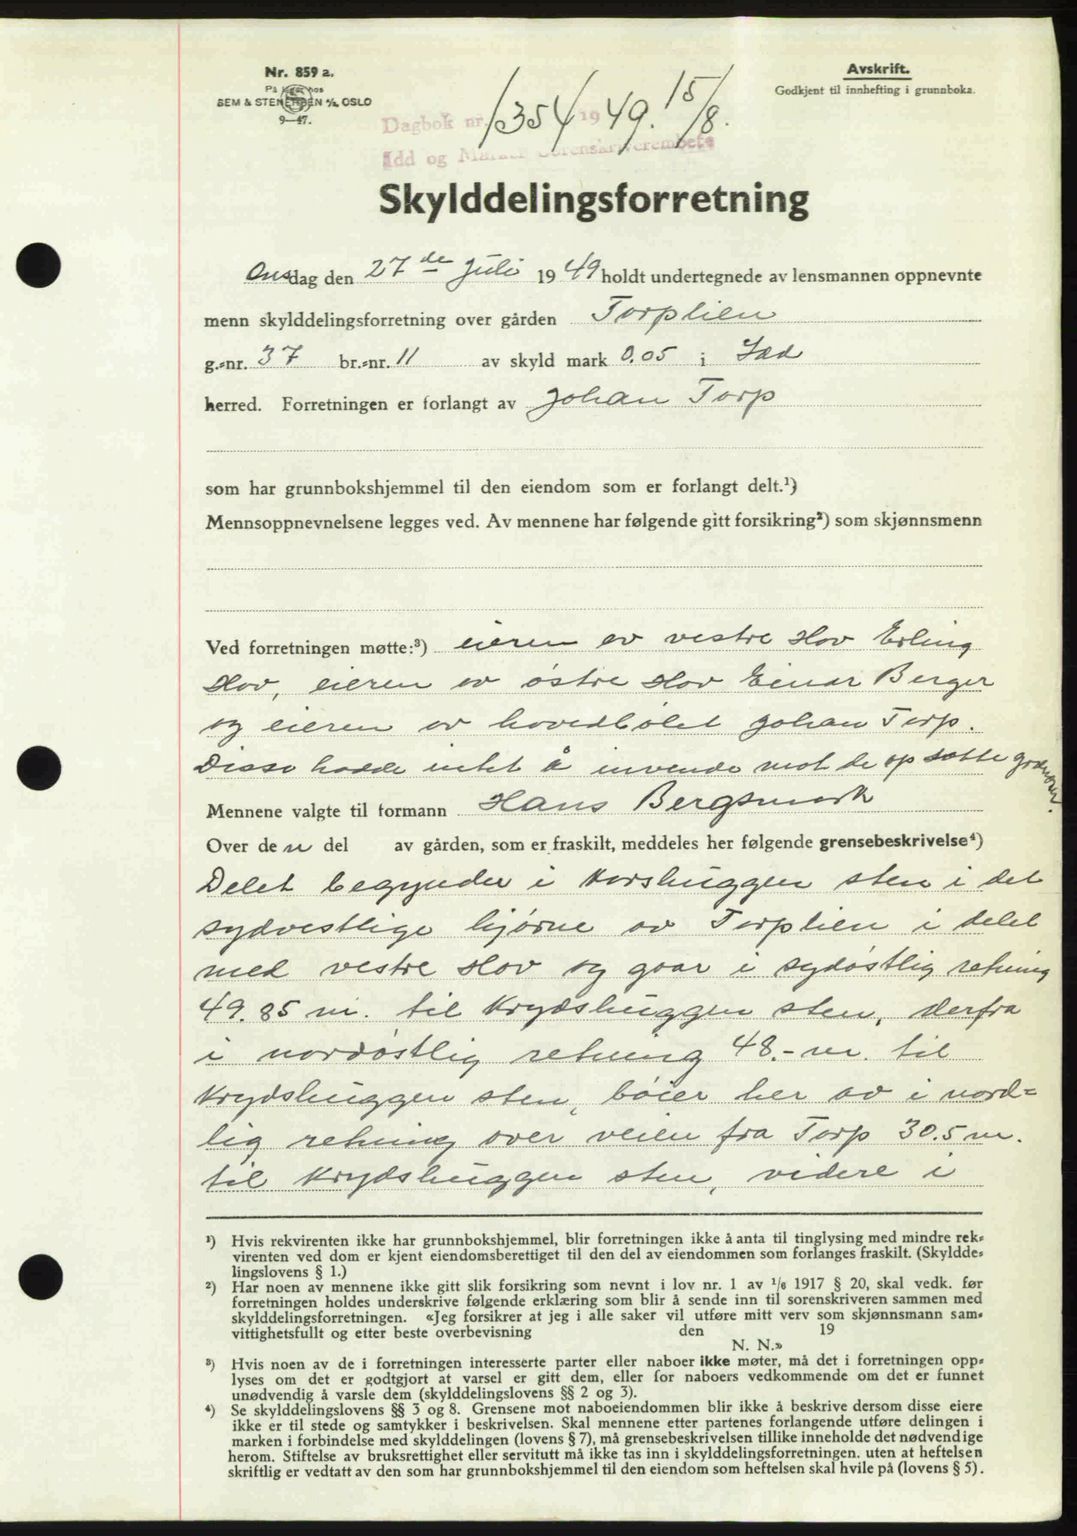 Nr. 859 a.
På lager hos
SEM & STENERSEN A/S, OSLO
9—47.
Avskrift.
Godkjent til innhefting i grunnboka.
Dagbok nr. 1354 1949. 15/8.
Idd og Marker Sorenskriverembete
Skylddelingsforretning
Onsdag den 27de juli 1949 holdt undertegnede av lensmannen oppnevnte
menn skylddelingsforretning over gården Torplien
g.-nr. 37 br.-nr. 11 av skyld mark 0.05 i Idd
herred. Forretningen er forlangt av Johan Torp
som har grunnbokshjemmel til den eiendom som er forlangt delt.¹)
Mennsoppnevnelsene legges ved. Av mennene har følgende gitt forsikring²) som skjønnsmenn
Ved forretningen møtte:³) eieren av vestre Hov Erling
Hov, eieren av østre Hov Einar Berger
og eieren av hovedbølet Johan Torp.
Disse hadde intet å invende mot de opsatte grænser.
Mennene valgte til formann Hans Bergsmark
Over den del av gården, som er fraskilt, meddeles her følgende grensebeskrivelse⁴)
Delet begynder i Korshuggen sten i det
sydvestlige hjørne av Torplien i delet
med vestre Hov og gaar i sydøstlig retning
49.85 m. til Krydshuggen sten, derfra
i nordøstlig retning 48.- m. til
Krydshuggen sten, bøier her av i nord=
lig retning over veien fra Torp 30.5 m.
til Krydshuggen sten, videre i
¹) Hvis rekvirenten ikke har grunnbokshjemmel, blir forretningen ikke å anta til tinglysing med mindre rek-
virenten ved dom er kjent eiendomsberettiget til den del av eiendommen som forlanges fraskilt. (Skyldde-
lingslovens § 1.)
²) Har noen av mennene ikke gitt slik forsikring som nevnt i lov nr. 1 av 1/6 1917 § 20, skal vedk. før
forretningen holdes underskrive følgende erklæring som blir å sende inn til sorenskriveren sammen med
skylddelingsforretningen. «Jeg forsikrer at jeg i alle saker vil utføre mitt verv som skjønnsmann sam-
vittighetsfullt og etter beste overbevisning den 19
N. N.»
³) Hvis noen av de i forretningen interesserte parter eller naboer ikke møter, må det i forretningen opp-
lyses om det er godtgjort at varsel er gitt dem, eller for naboers vedkommende om det er funnet
unødvendig å varsle dem (skylddelingslovens §§ 2 og 3).
⁴) Se skylddelingslovens §§ 3 og 8. Grensene mot naboeiendommen blir ikke å beskrive dersom disse eiere
ikke er til stede og samtykker i beskrivelsen. Skal mennene etter partenes forlangende utføre delingen i
marken i forbindelse med skylddelingen (lovens § 7), må grensebeskrivelsen tillike inneholde det nødvendige
herom. Stiftelse av bruksrettighet eller servitutt må ikke tas inn i skylddelingsforretningen, uten at heftelsen
skriftlig er vedtatt av den som har grunnbokshjemmel til den eiendom som heftelsen skal hvile på (lovens § 5).